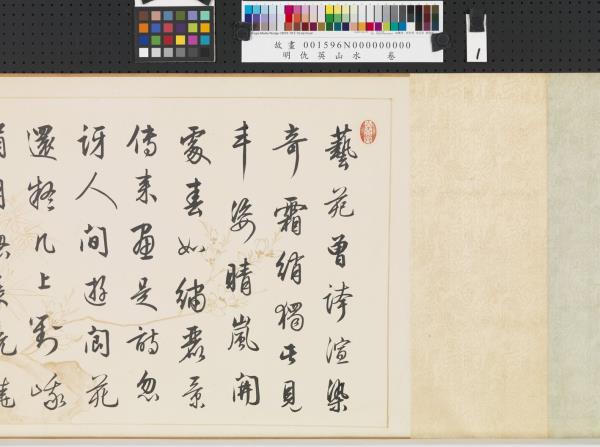 故畫 001596N000000000
明仇英山水 卷
1
藝苑曾誇渲染
奇霜綃獨此見
丰姿晴嵐開
處春如繡麗景
傳來畫是詩忽
訝人間遊閬苑
還疑几上對峨